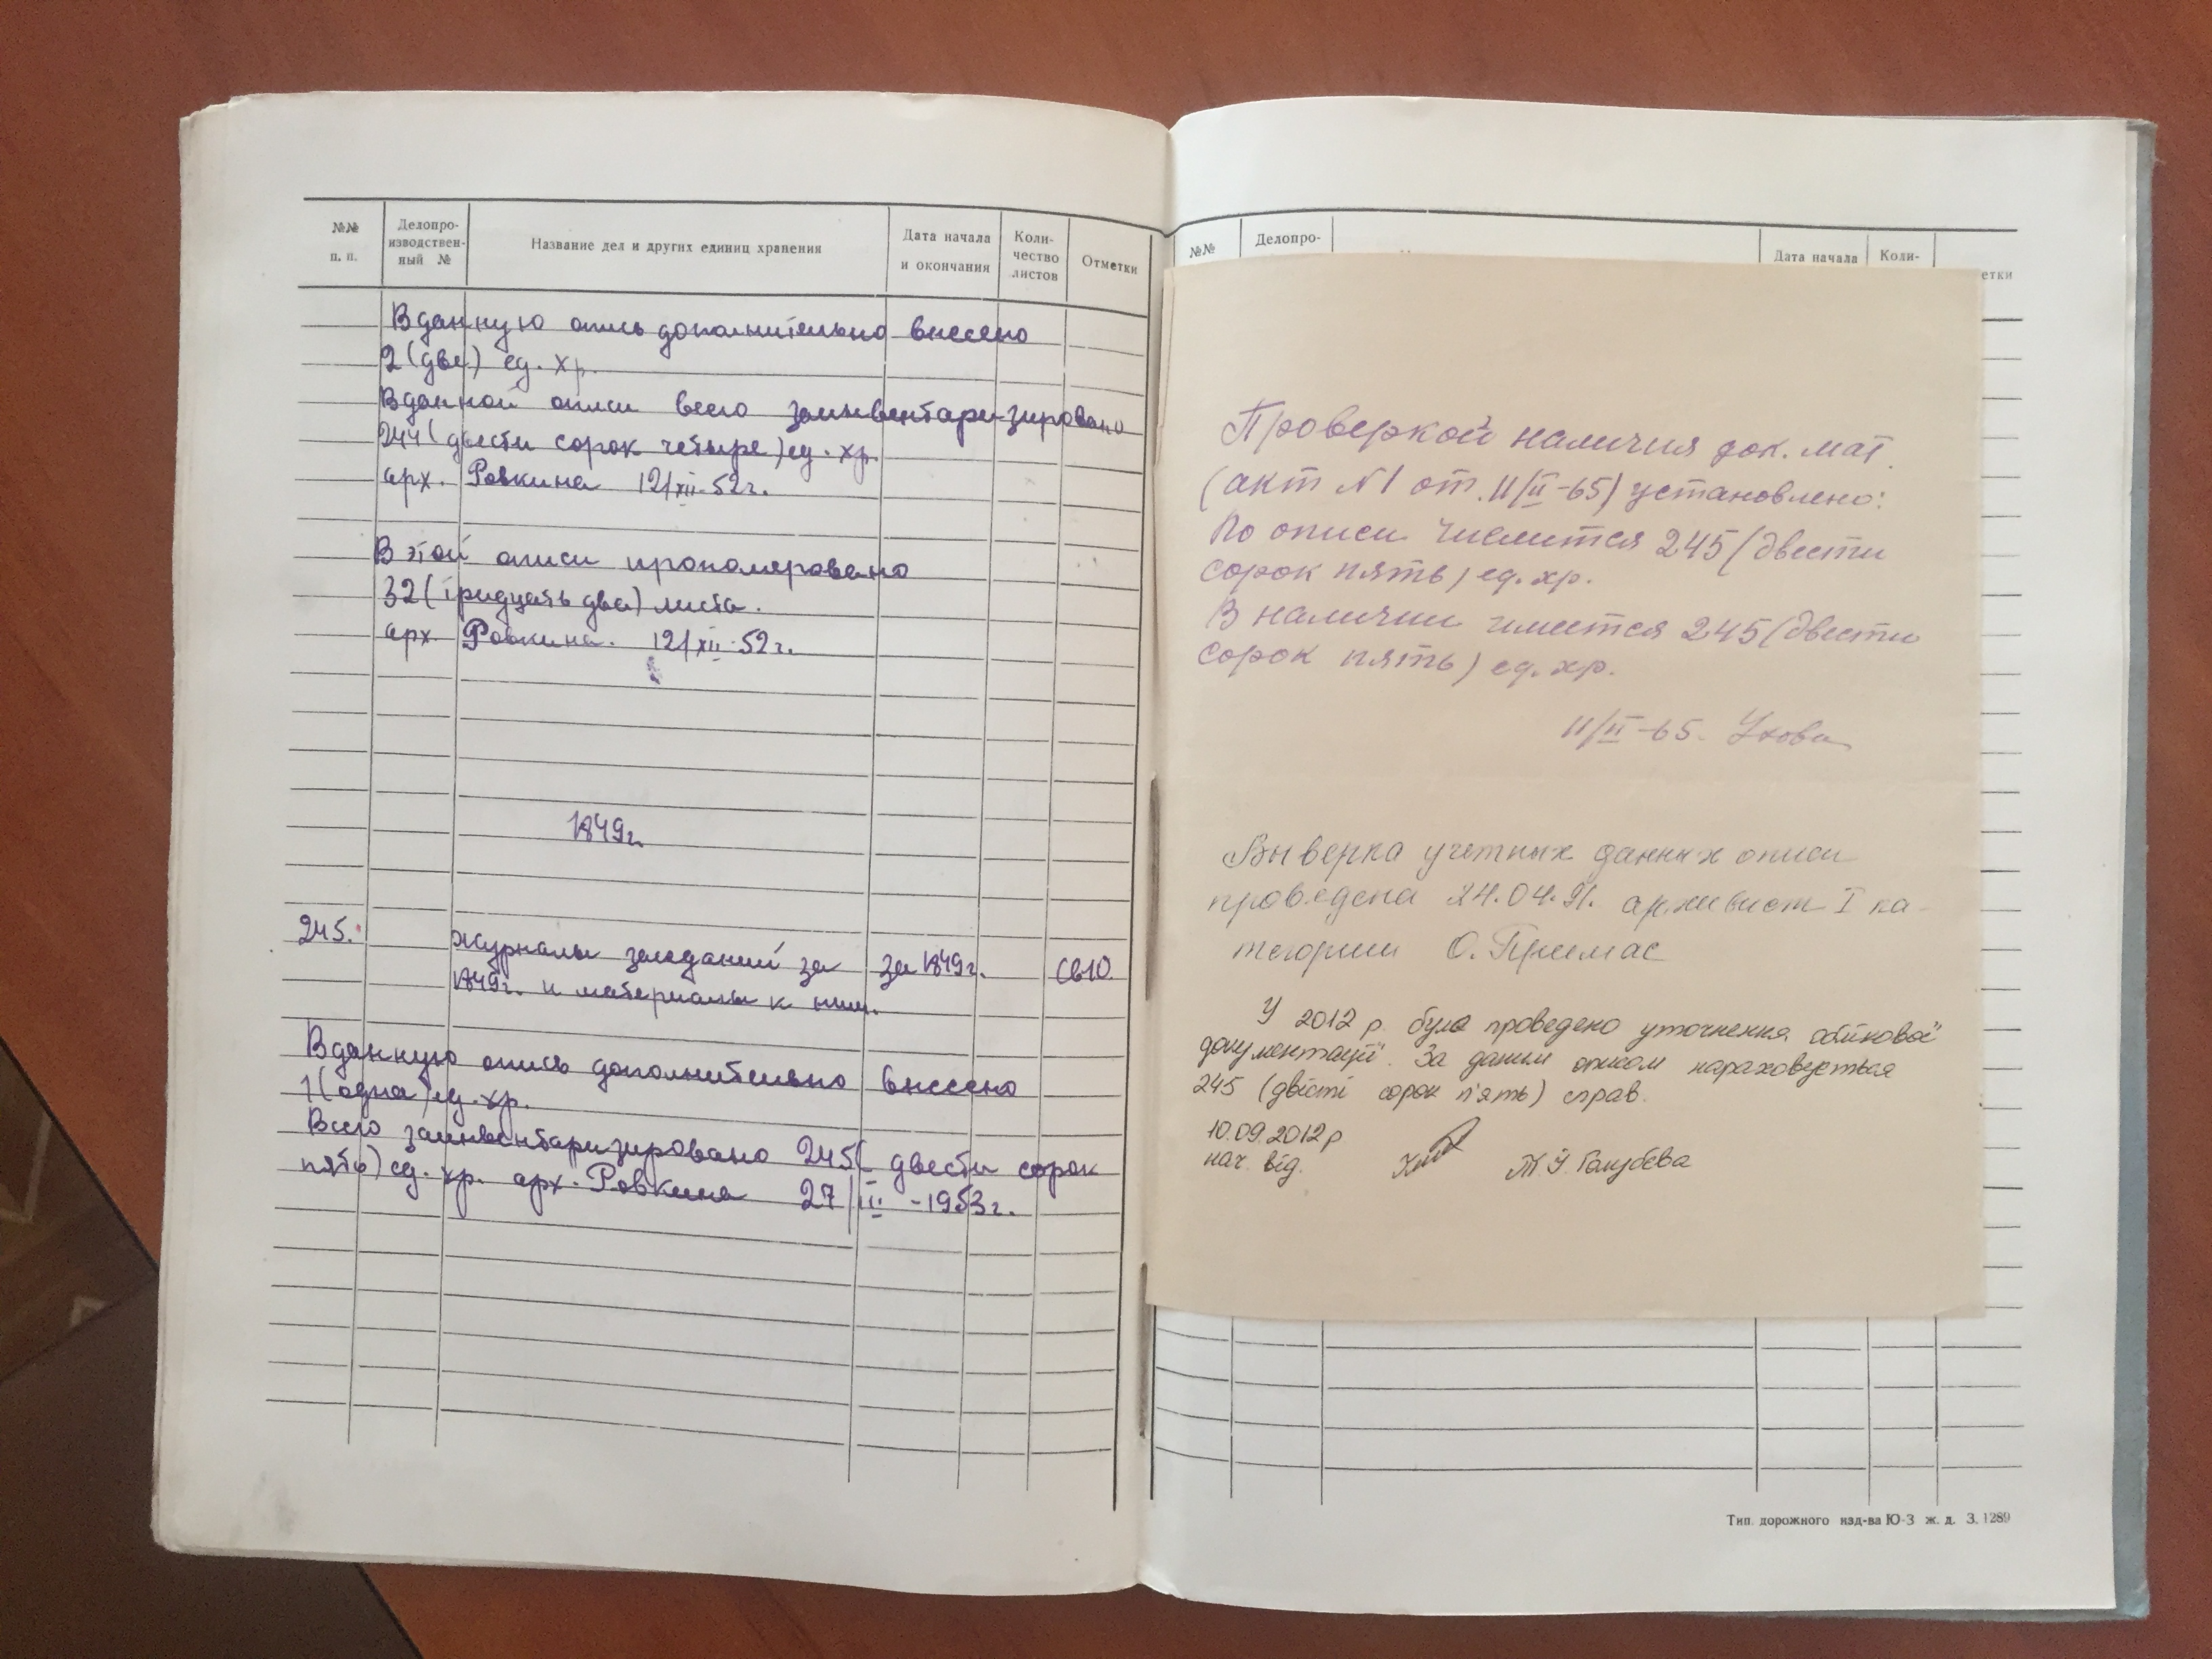 №№ п. п.
Делопро-
изводствен-
ный №
Название дел и других единиц хранения
Дата начала
и окончания
Коли-
чество
листов
Отметки
В данную опись дополнительно внесено
2 (две) ед. хр.
В данной описи всего заинвентаризировано
244 (двести сорок четыре) ед. хр.
арх. Ровкина 12/XII-52г.
В этой описи пронумеровано
32 (тридцать два) листа.
арх. Ровкина. 12/XII-52г.
1849г.
245. Журналы заседаний за за 1849г. св10.
1849г. и материалы к ним.
В данную опись дополнительно внесено
1 (одна) ед. хр.
Всего заинвентаризировано 245 (двести сорок
пять) ед. хр. арх. Ровкина 27/III-1953г.
№№
Делопро-
Дата начала
Коли-
етки
Проверкой наличия док. мат.
(акт N1 от 11/II-65) установлено:
По описи числится 245 (двести
сорок пять) ед. хр.
В наличии имеется 245 (двести
сорок пять) ед. хр.
11/II-65.
Выверка учетных данных описи
проведена 24.04.91. архивист I ка-
тегории О. Примас
У 2012 р. було проведено уточнення облікової
документації. За даним описом нараховується
245 (двісті сорок п'ять) справ.
10.09.2012 р
нач. від. Голубєва
Тип. дорожного изд-ва Ю-З ж. д. З. 1289